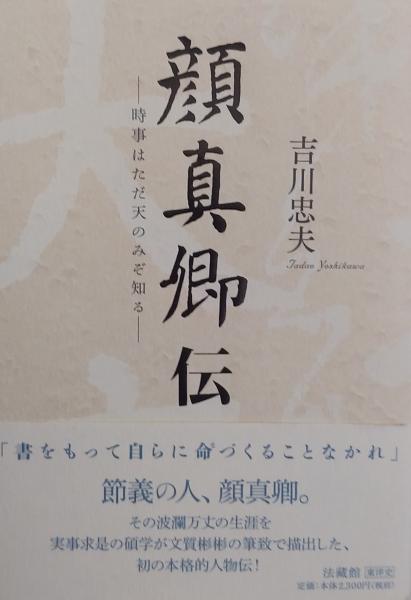 吉川忠夫
Tadao Yoshikawa
顔真卿伝
―時事はただ天のみぞ知る―
「書をもって自らに命づくることなかれ」
節義の人、顔真卿。
その波瀾万丈の生涯を
実事求是の碩学が文質彬彬の筆致で描出した、
初の本格的人物伝!
法藏館 東洋史
定価:本体2,300円(税別)